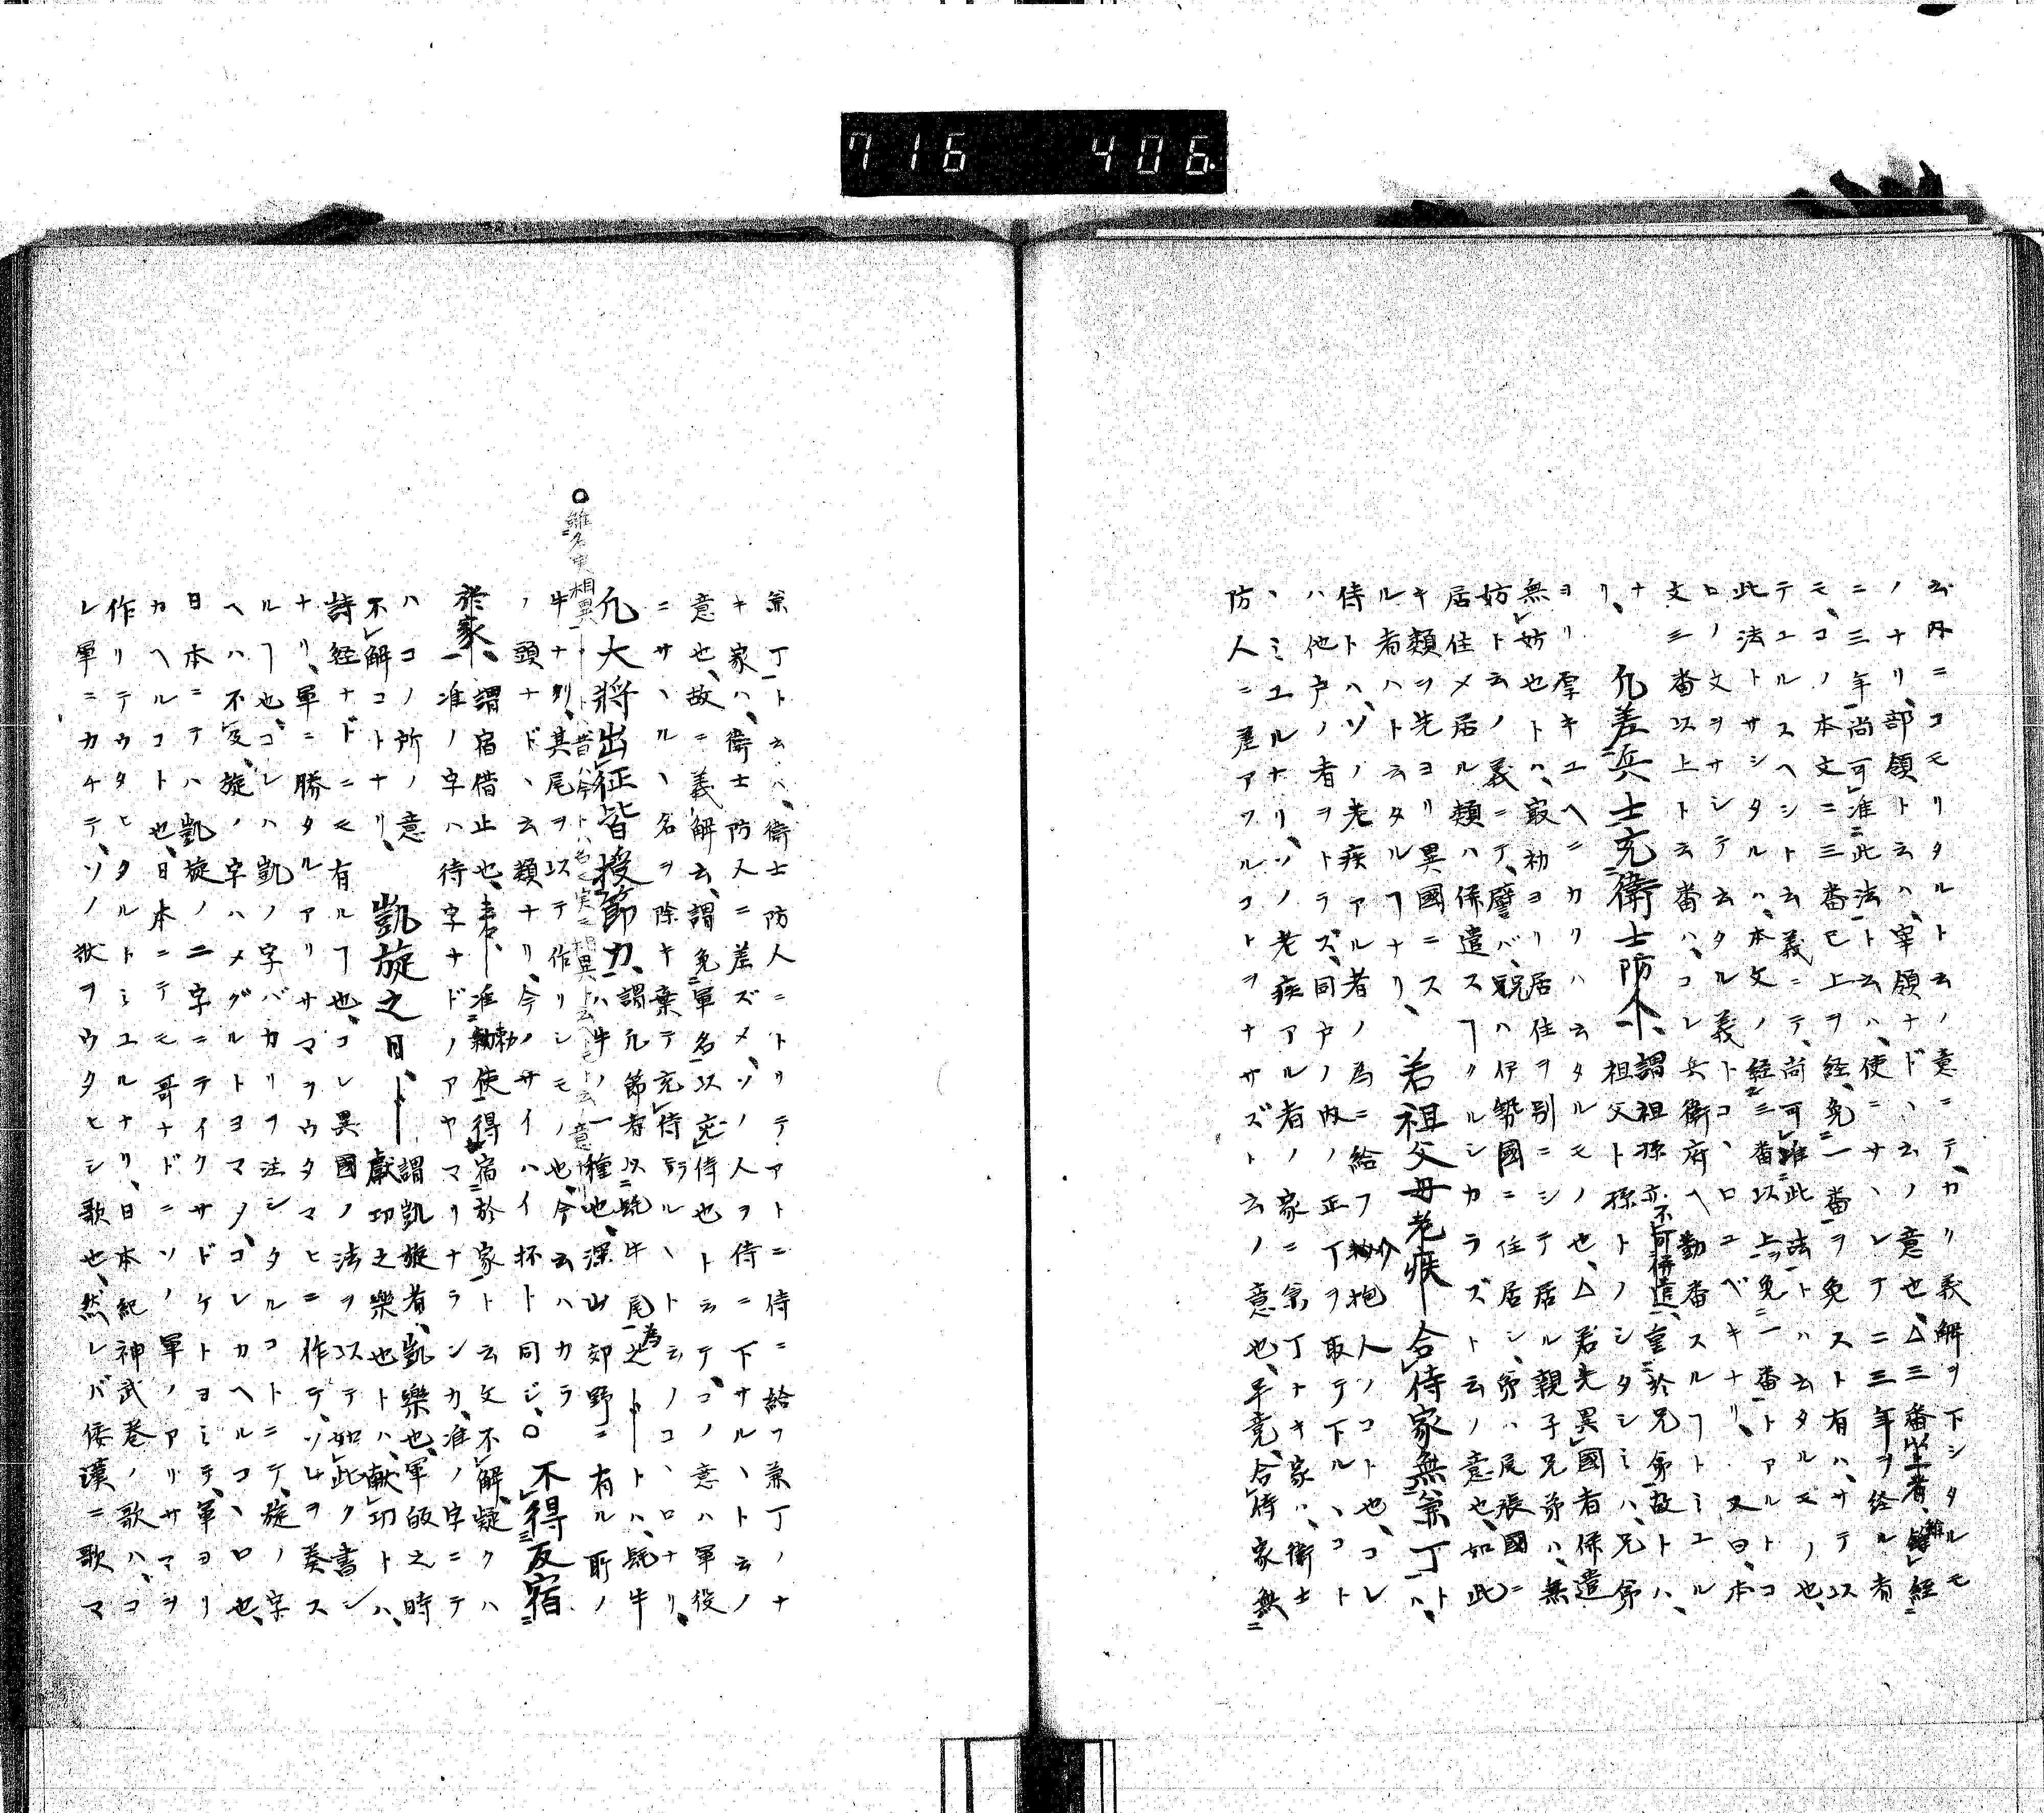 716 406.
云内ニコモリタルト云ノ意ニテ、カリ義解ヲ下シタルモ
ノナリ、部領ト云ハ、宰領ナド、云ノ意也、△三番以上者、雖経
ニ三年尚可准此法ト云ハ、使ニサ、レテ二三年ヲ経ル者
モ、コノ本文ニ三番已上ヲ経、免一番ヲ免スト有ハ、サテ以
テユルスヘシト云義ニテ、尚可准此法トハ云タルモノ也、
此法トサシタルハ、本文ノ経三番以上ヲ免一番トアルトコ
ロノ文ヲサシテ云タル義トコ、ロユベキナリ、又曰、本
文三番以上ト云番ハ、コレ兵衛府ヘ勤番スルフトミユル
ナ
リ、凡差兵士充衛士防人、謂祖孫亦不可併遣、重於兄弟故ト、
祖父ト孫トノシタシミハ、兄弟ハ
ヨリ厚キユヘニカリハ云タルモノ也、△若先異国者係遣
無妨也トハ、最初ヨリ居住ヲ別ニシテ居ル親子兄弟ハ、無
妨ト云ノ義ニテ、譬バ、兄ハ伊勢国ニ住居シ、弟ハ尾張国ニ
居住メ居ル類ハ、係遣スフクルシカラズト云ノ意也、如此
キ類ヲ先ヨリ異国ニス 若祖父母老疾―合侍家無兼丁ハト
ル者ハト云タルフナリ、
侍トハ、ソノ老疾アル者ノ為ニ給フ介抱人ノコト也、コレ
ハ他戸ノ者ヲトラズ、同戸ノ内ノ正丁ヲ取テ下ル、コト
、ミユルナリ、ソノ老疾アル者ノ家ニ兼丁ナキ家ハ、衛士
防人ニ差アツルコトヲナサズト云ノ意也、畢竟、合侍家無
兼丁ト云ハ、衛士防人ニトリテアトニ侍ニ給フ兼丁ノナ
キ家ハ、衛士防人ニ差ズメ、ソノ人ヲ侍ニ下サル、ト云ノ
意也、故ニ義解云、謂免軍名以充侍也ト云テ、コノ意ハ軍役
ニサ、ル、名ヲ除キ棄テ充侍ラル、ト云ノコ、ロナリ、
凡大将出征皆授節刀、謂凡節者以旄牛尾為之―ト、ハ、旄牛
ハ牛ノ一種也、深山郊野ニ有ル所ノ
○雖名実相異―ト、昔ト今トハ名ト実ニ相異ト云ヘドモト云ノ意ナリ
牛ナリ、其尾ヲ以テ作リシモノ也、今云ハカラ
ノ頭ナド、云類ナリ、今ノサイハイ杯ト同ジ、○ 不得反宿
於家、謂宿借止也、―准勅使得宿於家ト云文不解、疑クハ
准ノ字ハ待字ナドノアヤマリナランカ、准ノ字ニテ
ハコノ所ノ意
不解コトナリ、 凱旋之日、―謂凱旋者、凱楽也、軍敀之時
献功之楽也トハ、献功トハ、
詩経ナドニモ有ルフ也、コレ異国ノ法ヲ以テ如此ク書シ
ナリ、軍ニ勝タルアリサマヲウタマヒニ作テ、ソレヲ奏ス
ルフ也、ゴレハ凱ノ字バカリヲ注シタルコトニテ、旋ノ字
ヘハ不及、旋ノ字ハメグルトヨマタ、コレカヘルコ、ロ也、
日本ニテハ凱旋ノ二字ニテイクサドケトヨミテ、軍ヨリ
カヘルコト也、日本ニテモ哥ナドニソノ軍ノアリサマヲ
作リテウタヒタルトミユルナリ、日本紀神武巻ノ歌ハ、コ
レ軍ニカチテ、ソノ状ヲウタヒシ歌也、然レバ倭漢ニ歌マ